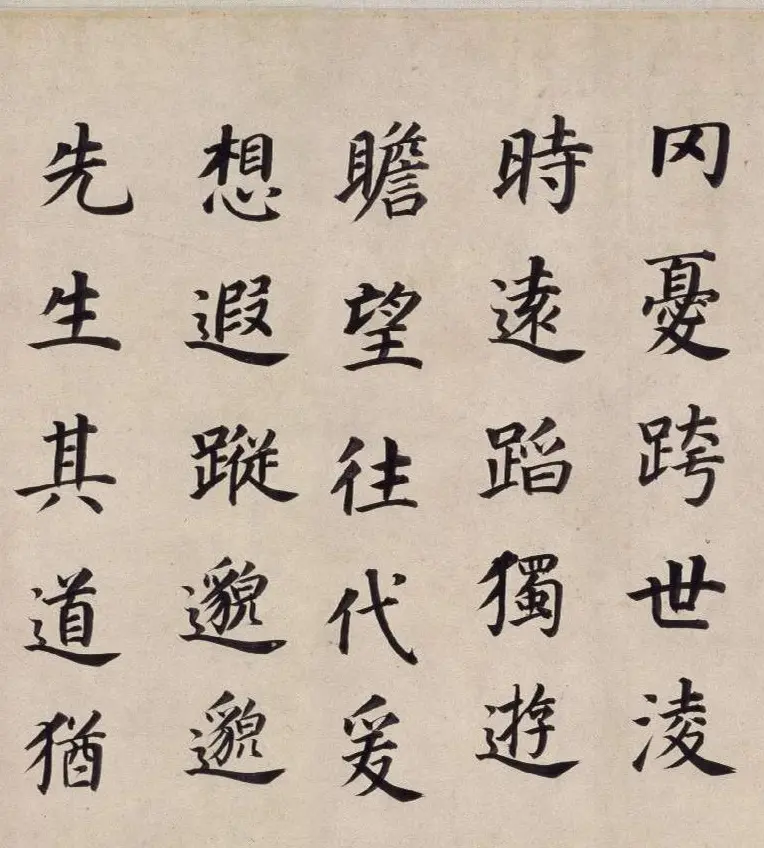 冈憂跨世淩
時遠蹈獨遊
瞻望往代爰
想遐蹤邈邈
先生其道猶